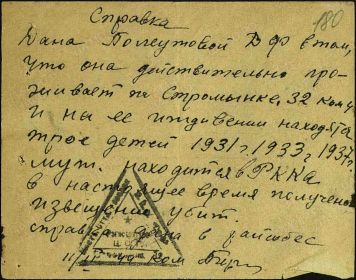 Справка
180
Дана Полеутовой В Ф в том,
что она действительно про-
живает по Стромынке, 32
и на ее иждивении находятся
трое детей 1931 г. 1933, 1937 г.
муж. находится в РККА
в настоящее время получено
извещение убит.
справка дана в райсобес